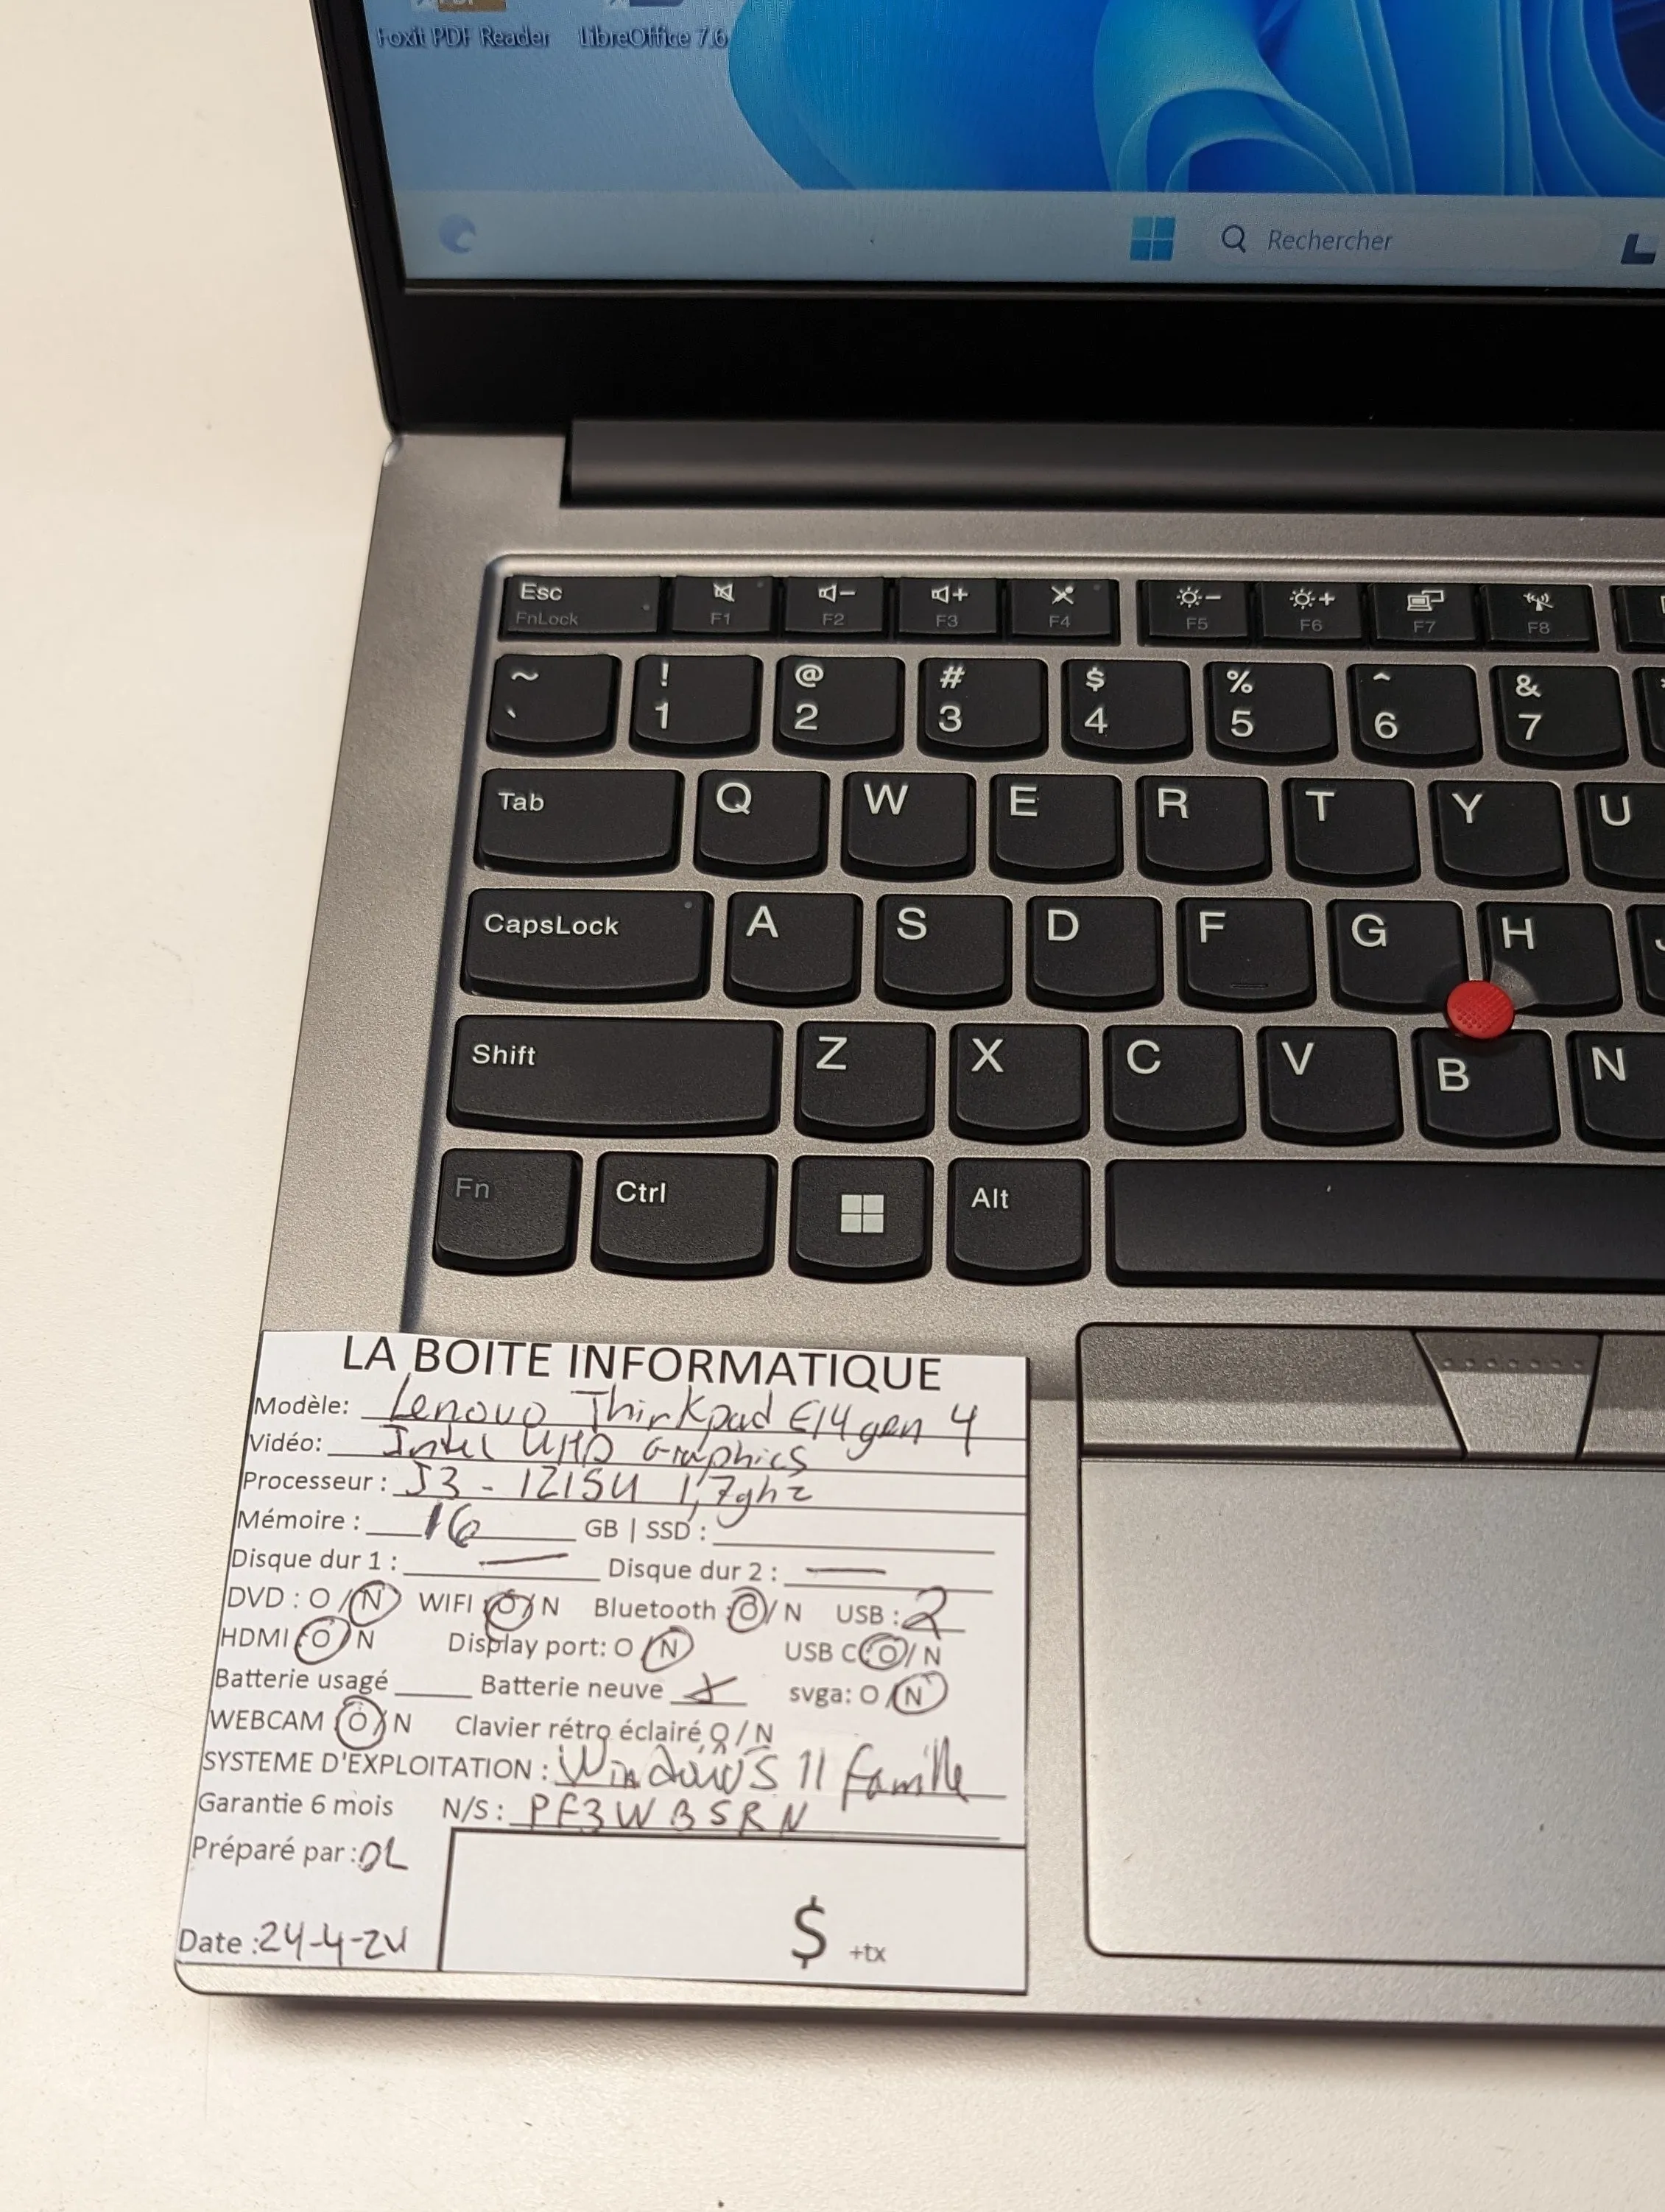 Foxit PDF Reader LibreOffice 7.6
Rechercher
Esc FnLock F1 F2 F3 F4 F5 F6 F7 F8
~ ` ! 1 @ 2 # 3 $ 4 % 5 ^ 6 & 7
Tab Q W E R T Y U
CapsLock A S D F G H
Shift Z X C V B N
Fn Ctrl Alt
LA BOITE INFORMATIQUE
Modèle: Lenovo Thinkpad E14 gen 4
Vidéo: Intel UHD Graphics
Processeur : I3 - 1215U 1,7ghz
Mémoire : 16 GB | SSD :
Disque dur 1 : — Disque dur 2 : —
DVD : O / N WIFI : O / N Bluetooth : O / N USB : 2
HDMI : O / N Display port: O / N USB C : O / N
Batterie usagé Batterie neuve X svga: O / N
WEBCAM : O / N Clavier rétro éclairé, O / N
SYSTEME D'EXPLOITATION : Windows 11 famille
Garantie 6 mois N/S : PF3WBSRN
Préparé par : DL
Date : 24-4-24
$ +tx